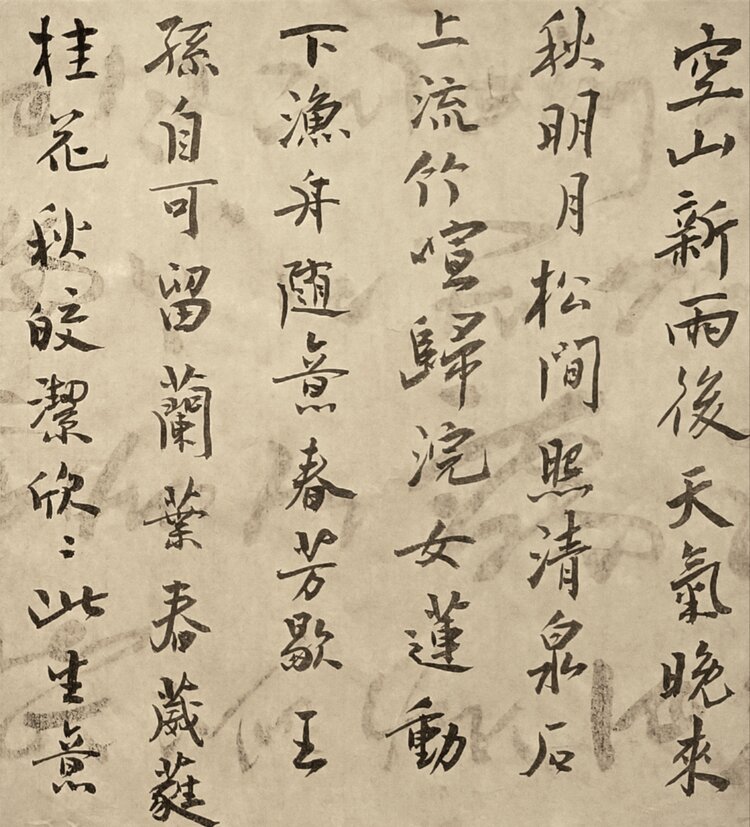 空山新雨後天氣晚來
秋明月松間照清泉石
上流竹喧歸浣女蓮動
下漁舟隨意春芳歇王
孫自可留蘭葉春葳蕤
桂花秋皎潔欣〻此生意